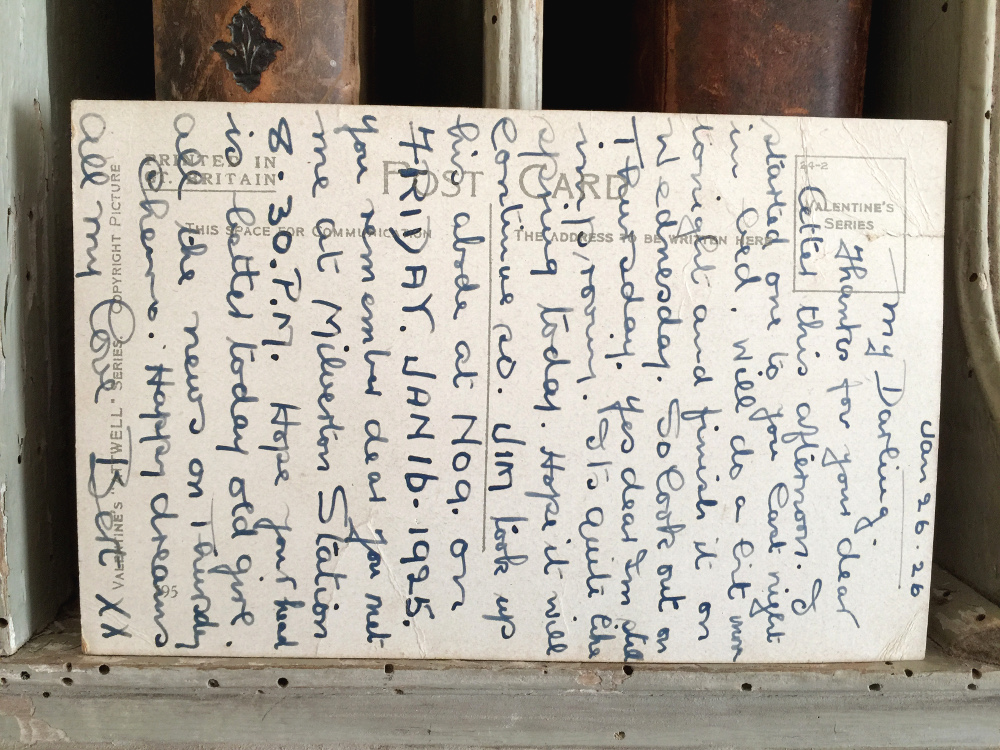 Jan 26. 26
My Darling,
Thanks for your dear
letter this afternoon. I
started one to you last night
in bed. Will do a bit more
tonight and finish it on
Wednesday. So look out on
Thursday. Yes dear I'm still
in my room. It's quite like
spring today. Hope it will
continue so. JIM took up
his abode at No9. on
FRIDAY. JAN 16. 1925.
you remember dear you met
me at Milverton Station
8.30.P.M. Hope your head
is better today old girl.
all the news on Thursday
Cheerio. Happy dreams
all my love Bert XX
PRINTED IN
GT. BRITAIN
POST CARD
THIS SPACE FOR COMMUNICATION
THE ADDRESS TO BE WRITTEN HERE
24-2
VALENTINE'S
SERIES
VALENTINE'S "ATTWELL" SERIES COPYRIGHT PICTURE
95